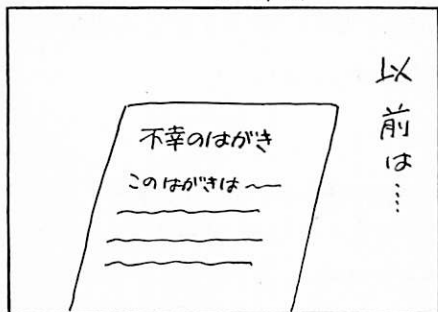 以前は……
不幸のはがき
このはがきは〜〜